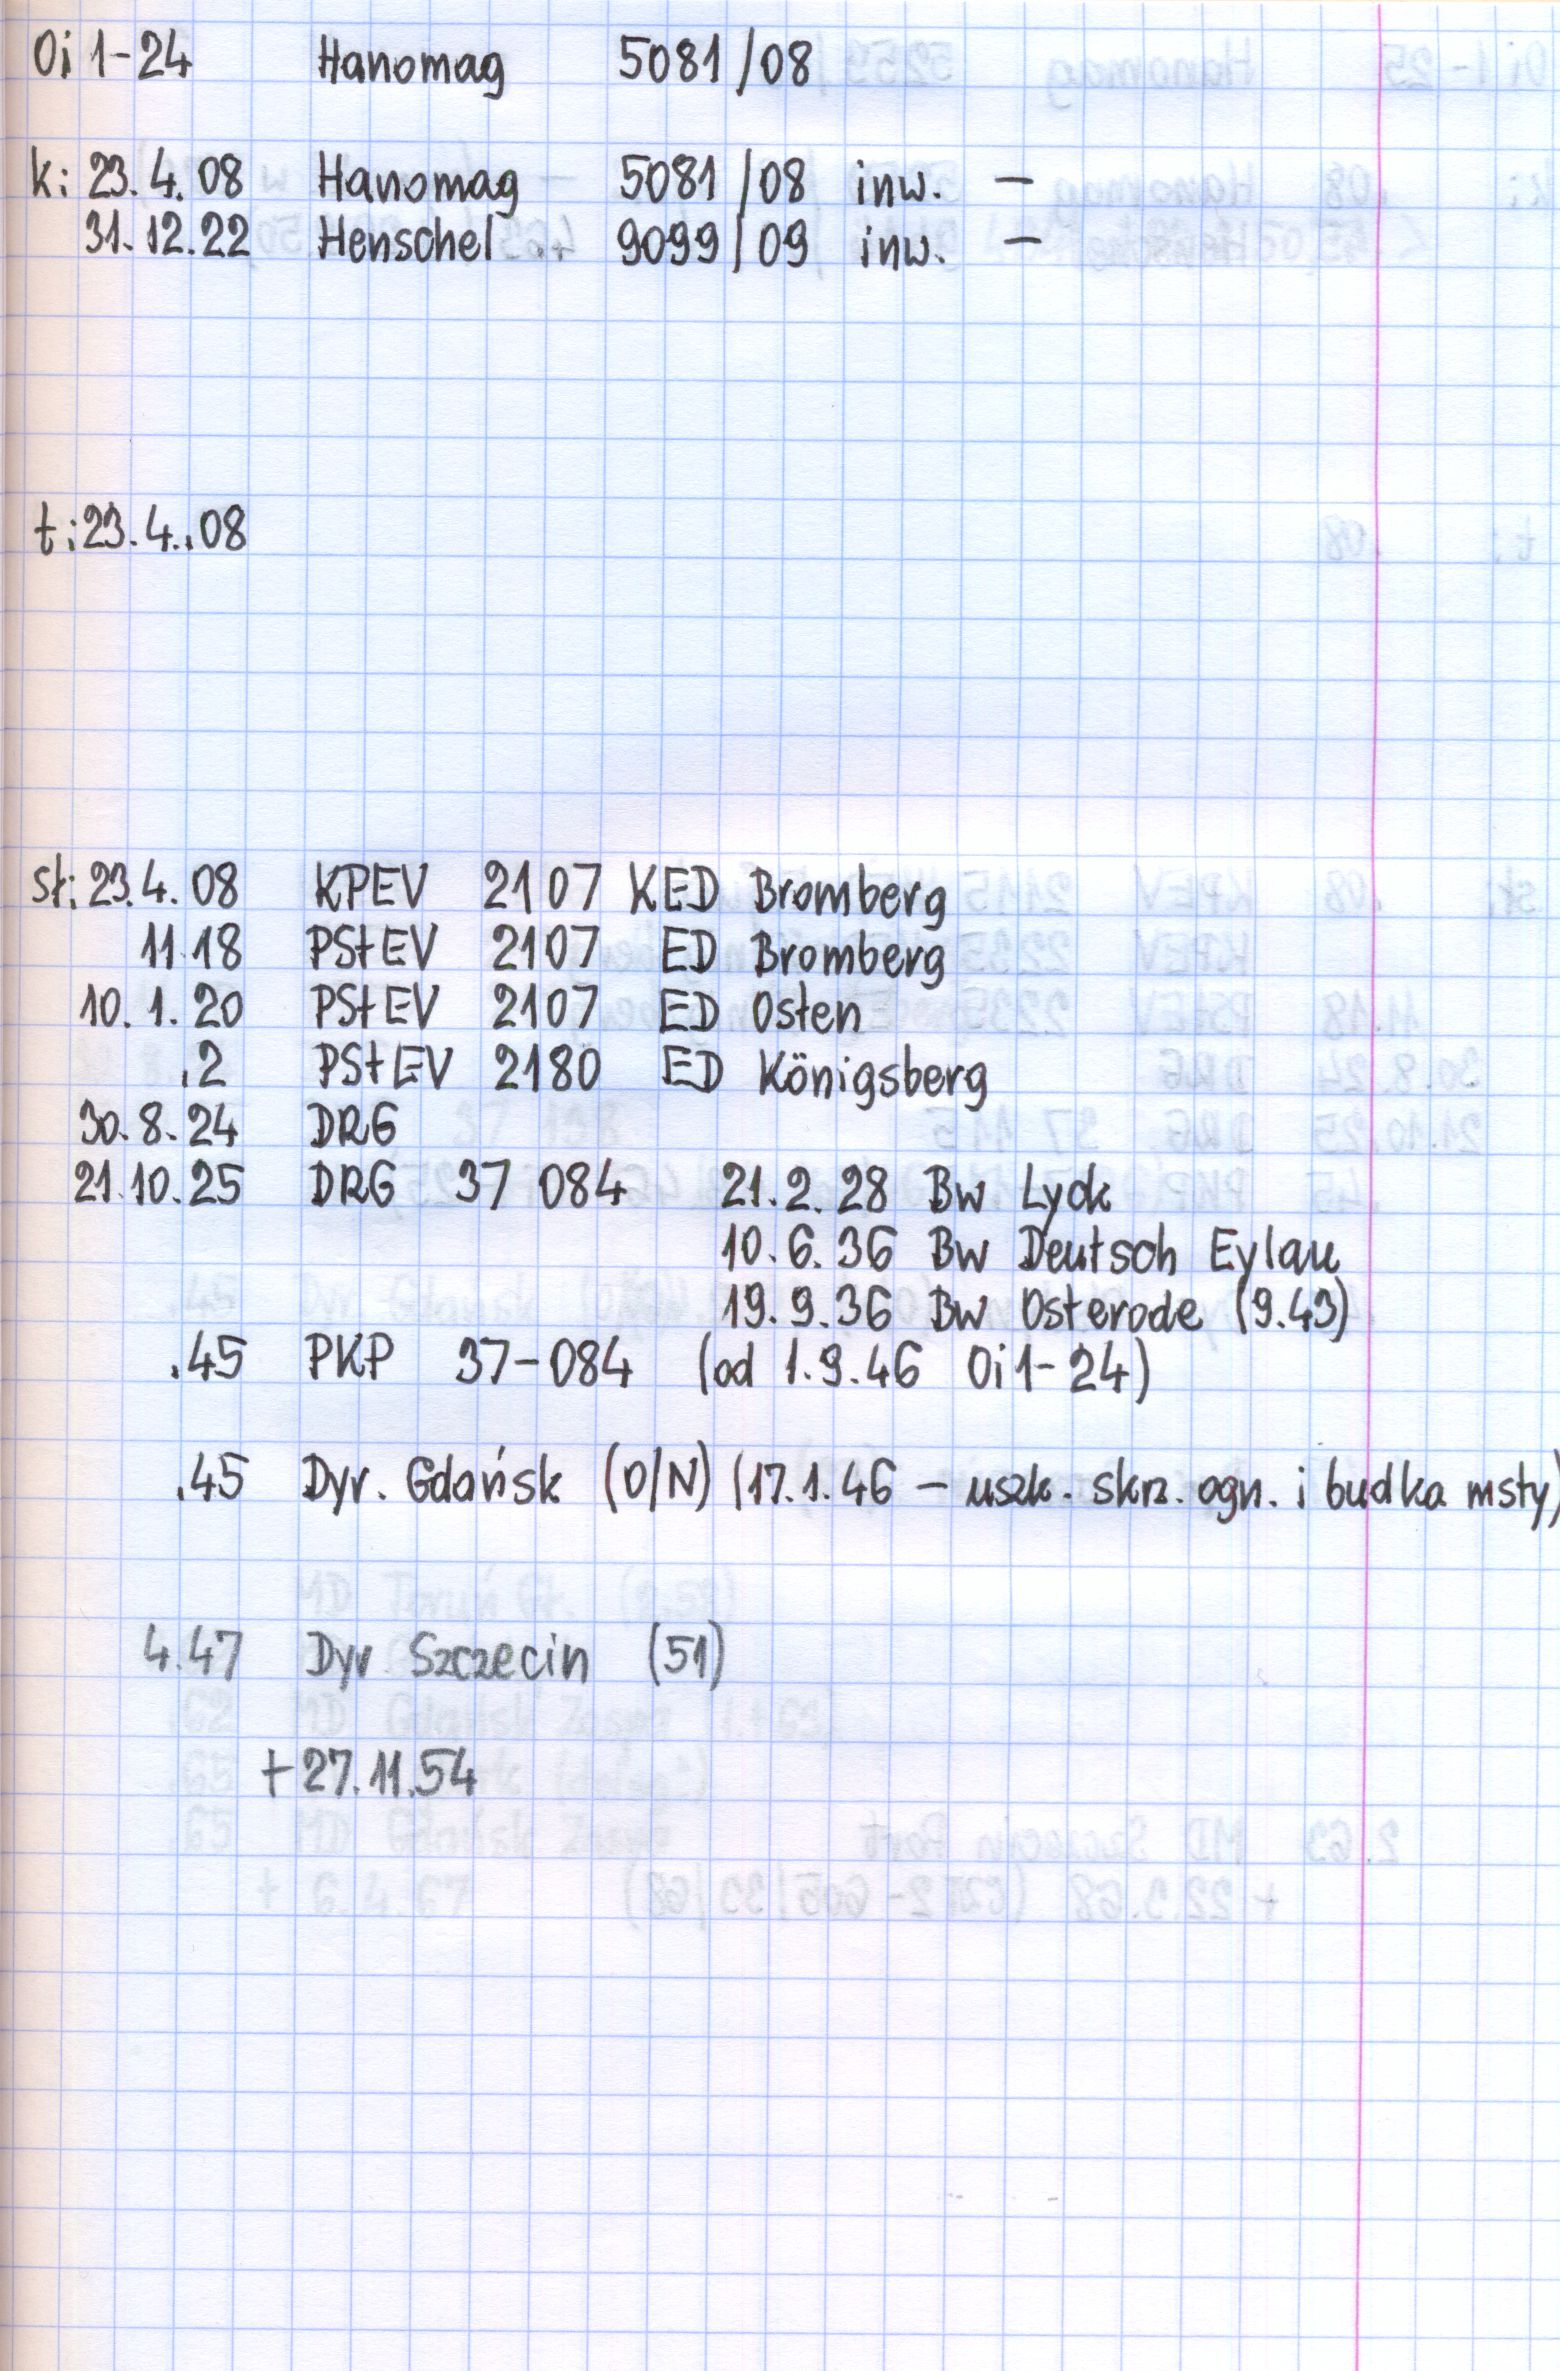 Oi 1-24 Hanomag 5081/08
k: 23.4.08 Hanomag 5081/08 inw. –
31.12.22 Henschel 9099/09 inw. –
t: 23.4.08
st: 23.4.08 KPEV 2107 KED Bromberg
11.18 PStEV 2107 ED Bromberg
10.1.20 PStEV 2107 ED Osten
.2 PStEV 2180 ED Königsberg
30.8.24 DRG
21.10.25 DRG 37 084 21.2.28 Bw Lyck
10.6.36 Bw Deutsch Eylau
19.9.36 Bw Osterode (9.43)
.45 PKP 37-084 (od 1.9.46 Oi1-24)
.45 Dyr. Gdańsk (O/N) (17.1.46 – uszk. skrz. ogn. i budka msty)
4.47 Dyr Szczecin (51)
+ 27.11.54